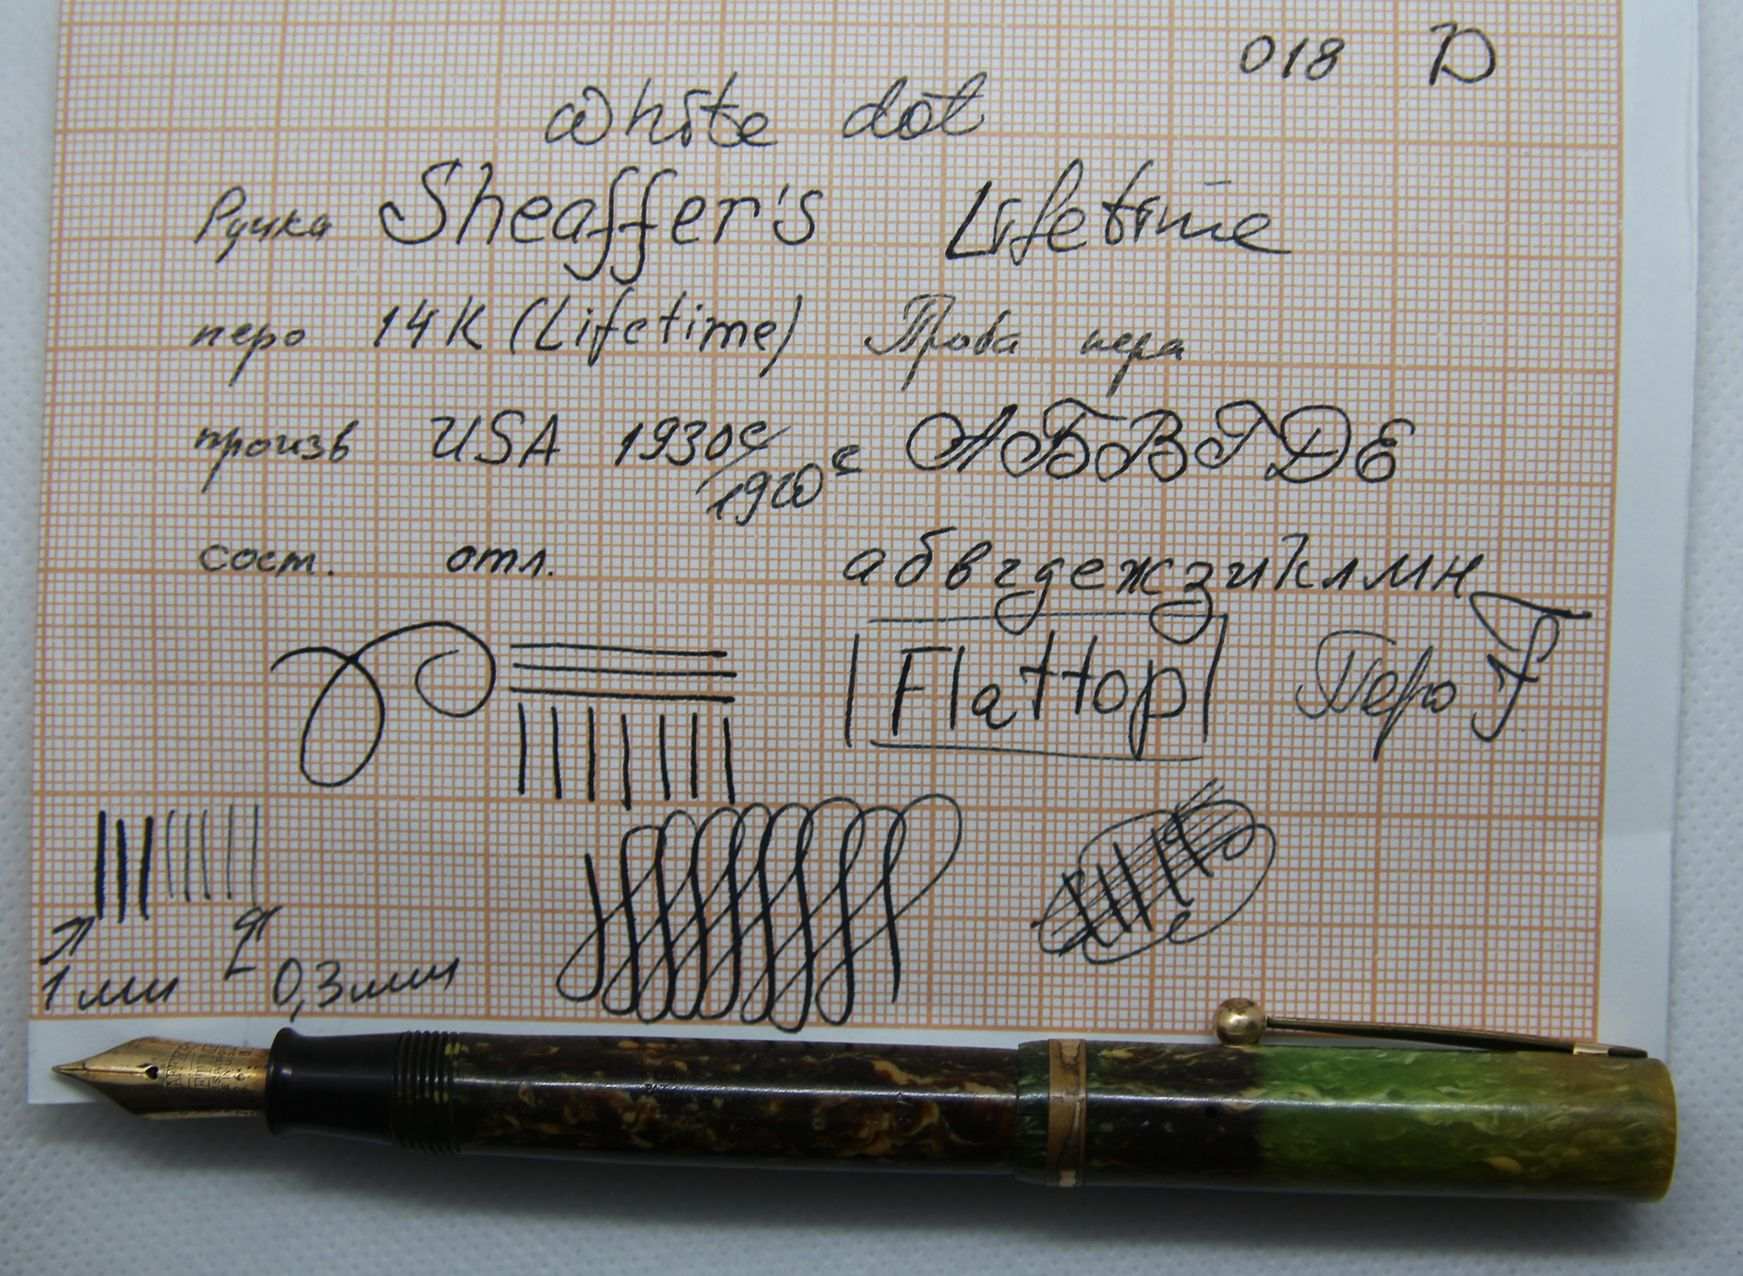 018 D
White dot
Ручка Sheaffer's Lifetime
перо 14K (Lifetime) Проба пера
произв USA 1930е/1920е АБВГДЕ
сост. отл. абвгдежзиклмн
Flattop Перо F
1мм 0,3мм